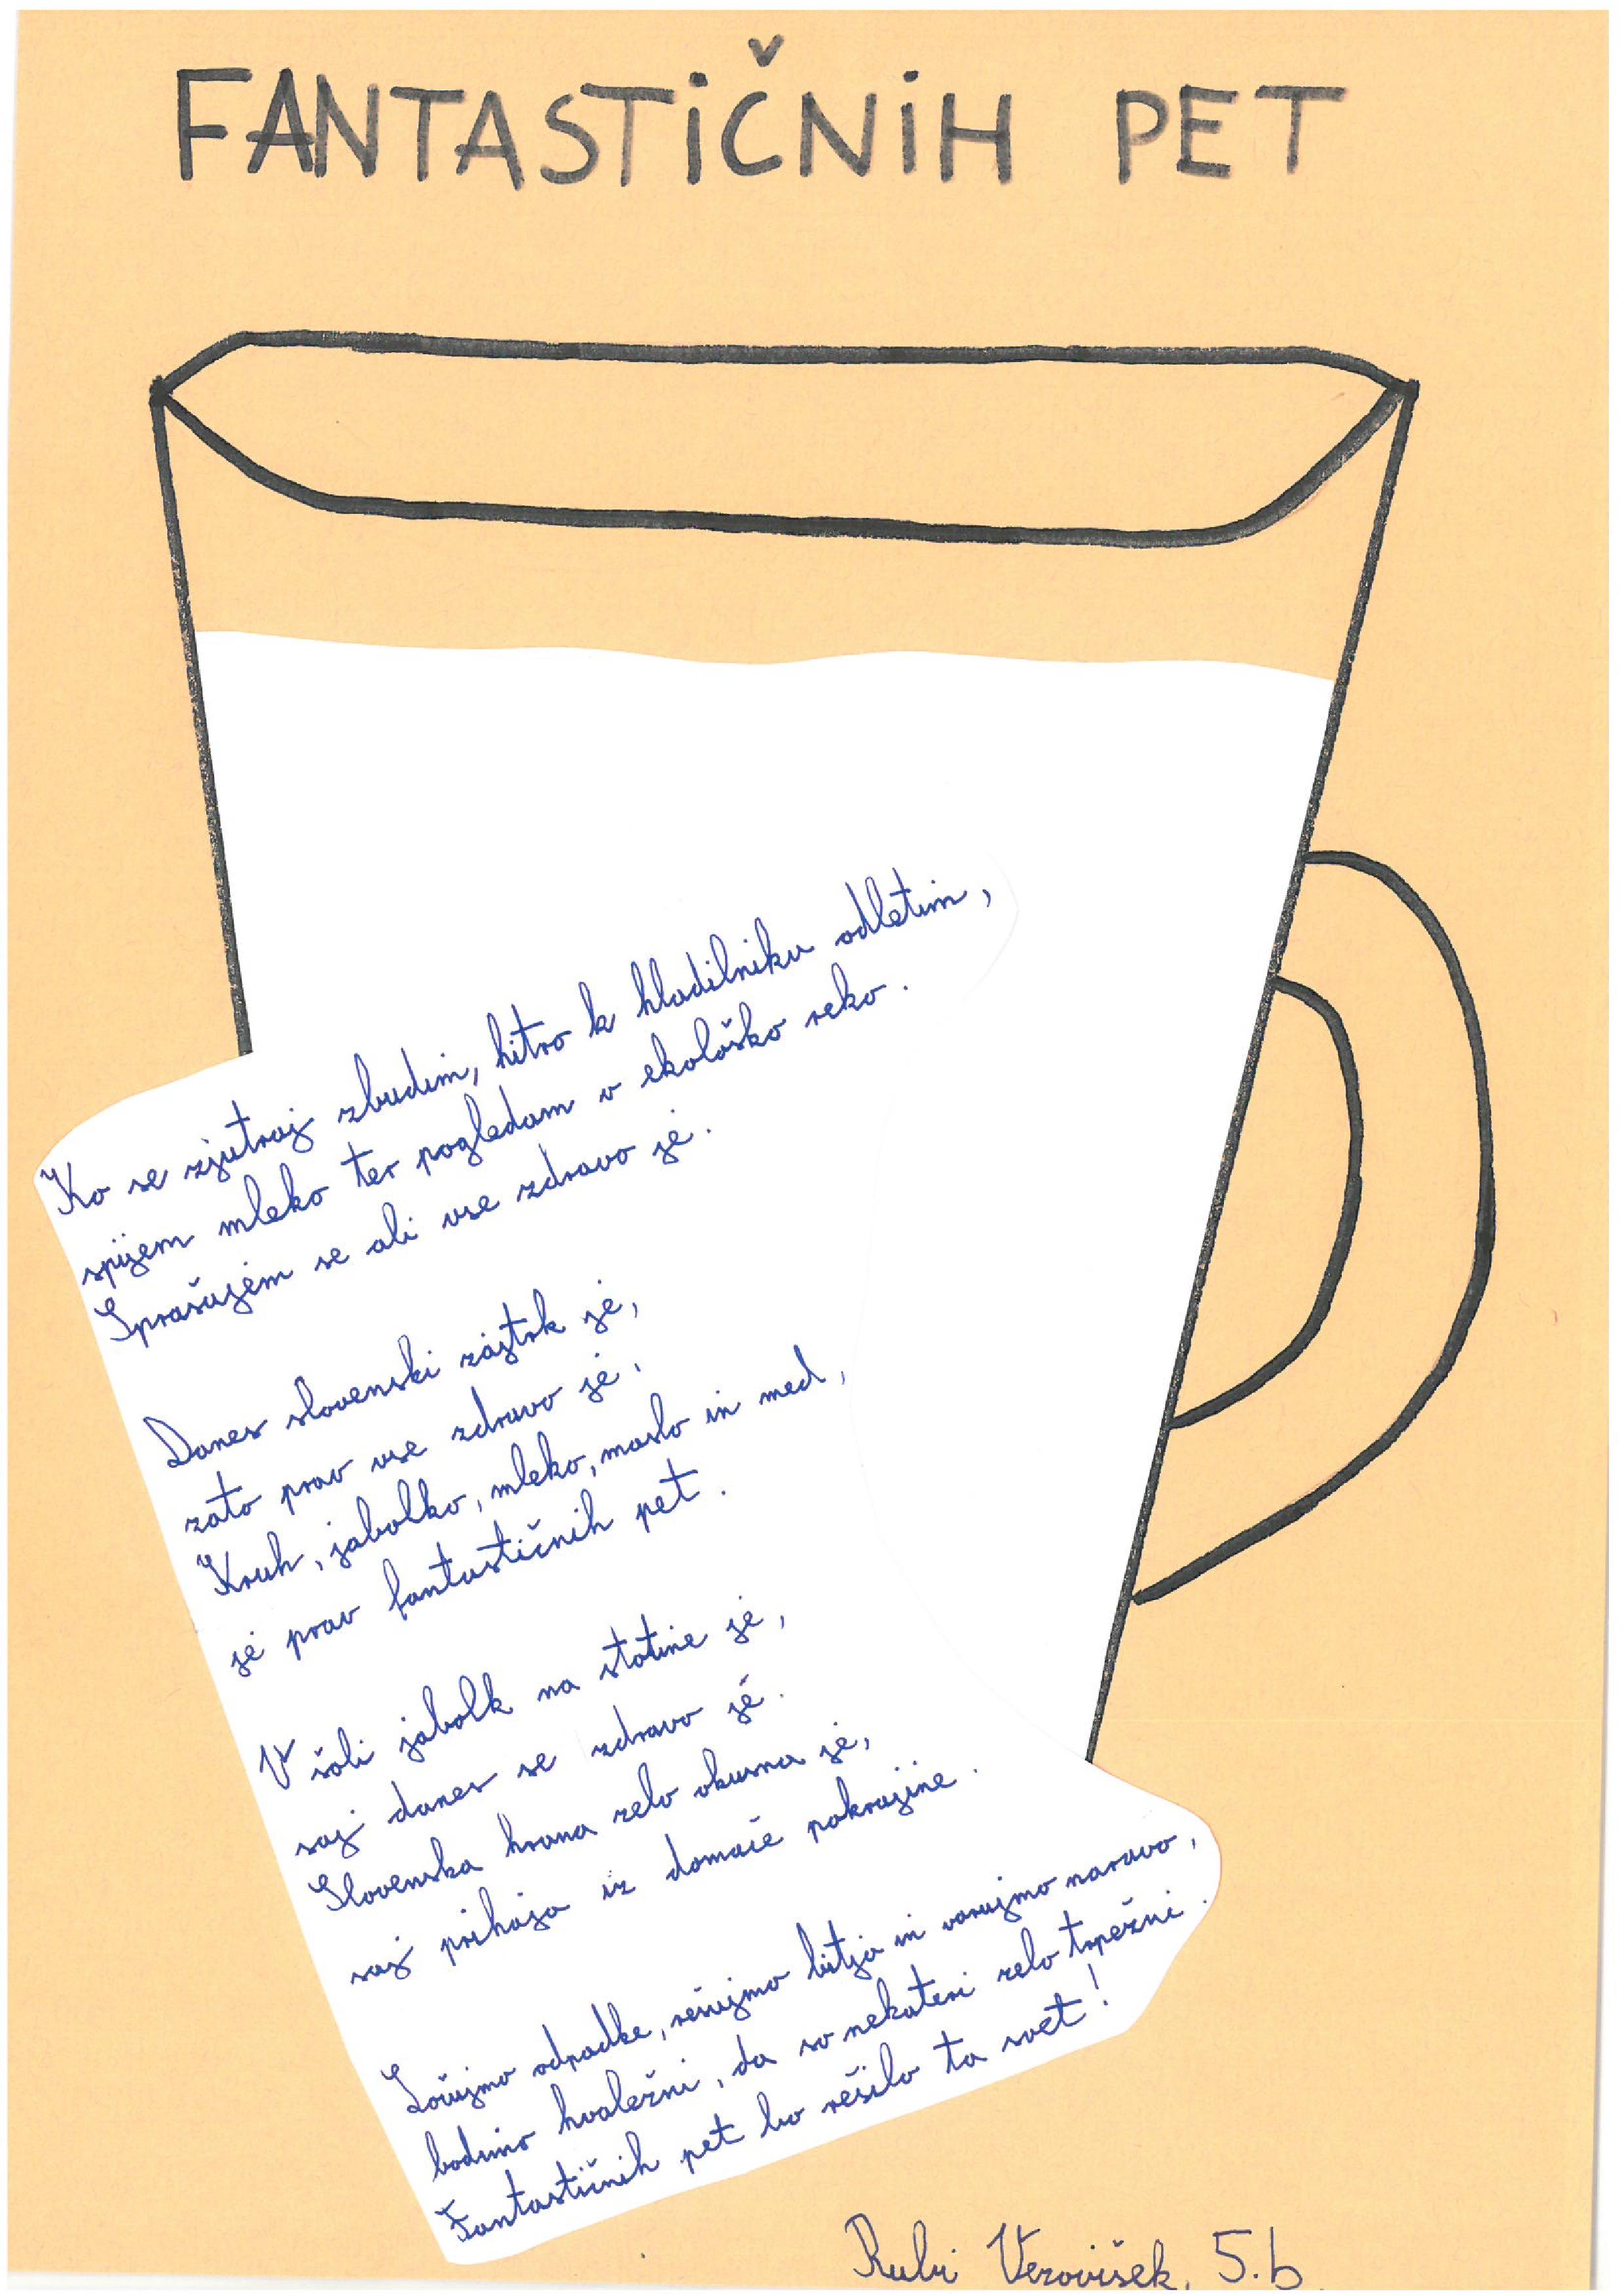 FANTASTIČNIH PET
Ko se zjutraj zbudim, hitro k hladilniku odletim,
spijem mleko ter pogledam v ekološko reko.
Sprašujem se ali vse zdravo je.
Danes slovenski zajtrk je,
zato prav vse zdravo je.
Kruh, jabolko, mleko, maslo in med,
je prav fantastičnih pet.
V šoli jabolk na stotine je,
saj danes se zdravo jé.
Slovenska hrana zelo okusna je,
saj prihaja iz domače pokrajine.
Ločujmo odpadke, rešujmo bitja in varujmo naravo,
bodimo hvaležni, da so nekateri zelo trpežni.
Fantastičnih pet bo rešilo ta svet!
Rubi Verovišek, 5.b